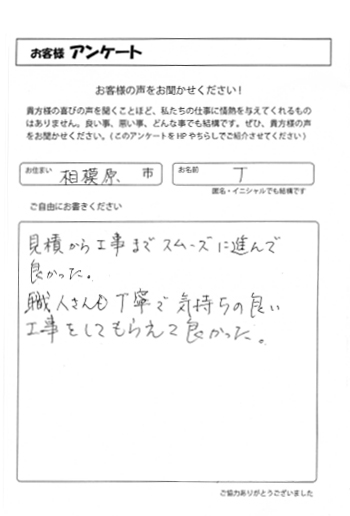 お客様 アンケート
お客様の声をお聞かせください！
貴方様の喜びの声を聞くことほど、私たちの仕事に情熱を与えてくれるもの
はありません。良い事、悪い事、どんな事でも結構です。ぜひ、貴方様の声
をお聞かせください。（このアンケートをHPやちらしでご紹介させてください）
お住まい 相模原 市 お名前 T
匿名・イニシャルでも結構です
ご自由にお書きください
見積から工事までスムーズに進んで
良かった。
職人さんも丁寧で気持ちの良い
工事をしてもらえて良かった。
ご協力ありがとうございました